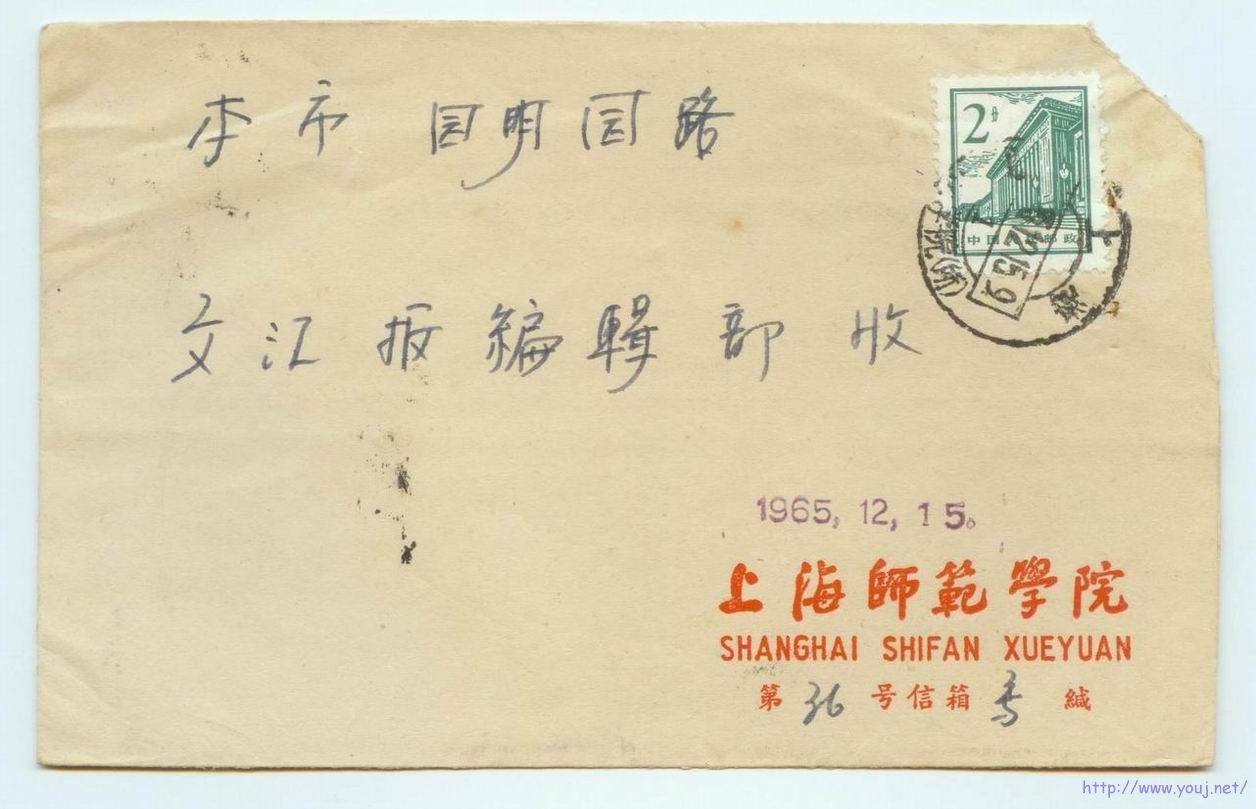 本市 园明园路
2分
中国人民邮政
文汇报编辑部 收
1965, 12, 15。
上海師範學院
SHANGHAI SHIFAN XUEYUAN
第 36 号信箱 缄
http://www.youj.net/